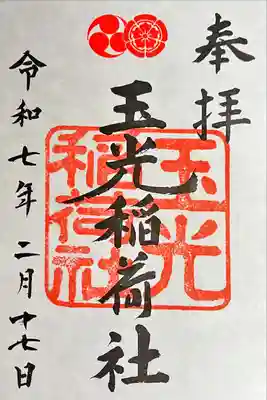 奉拝
玉光稲荷社
玉光
稲荷社
令和七年 二月 十七日